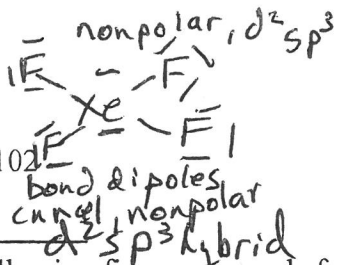 nonpolar, d² sp³
F F
Xe
F F
102
bond dipoles
cancel, nonpolar
d² sp³ hybrid